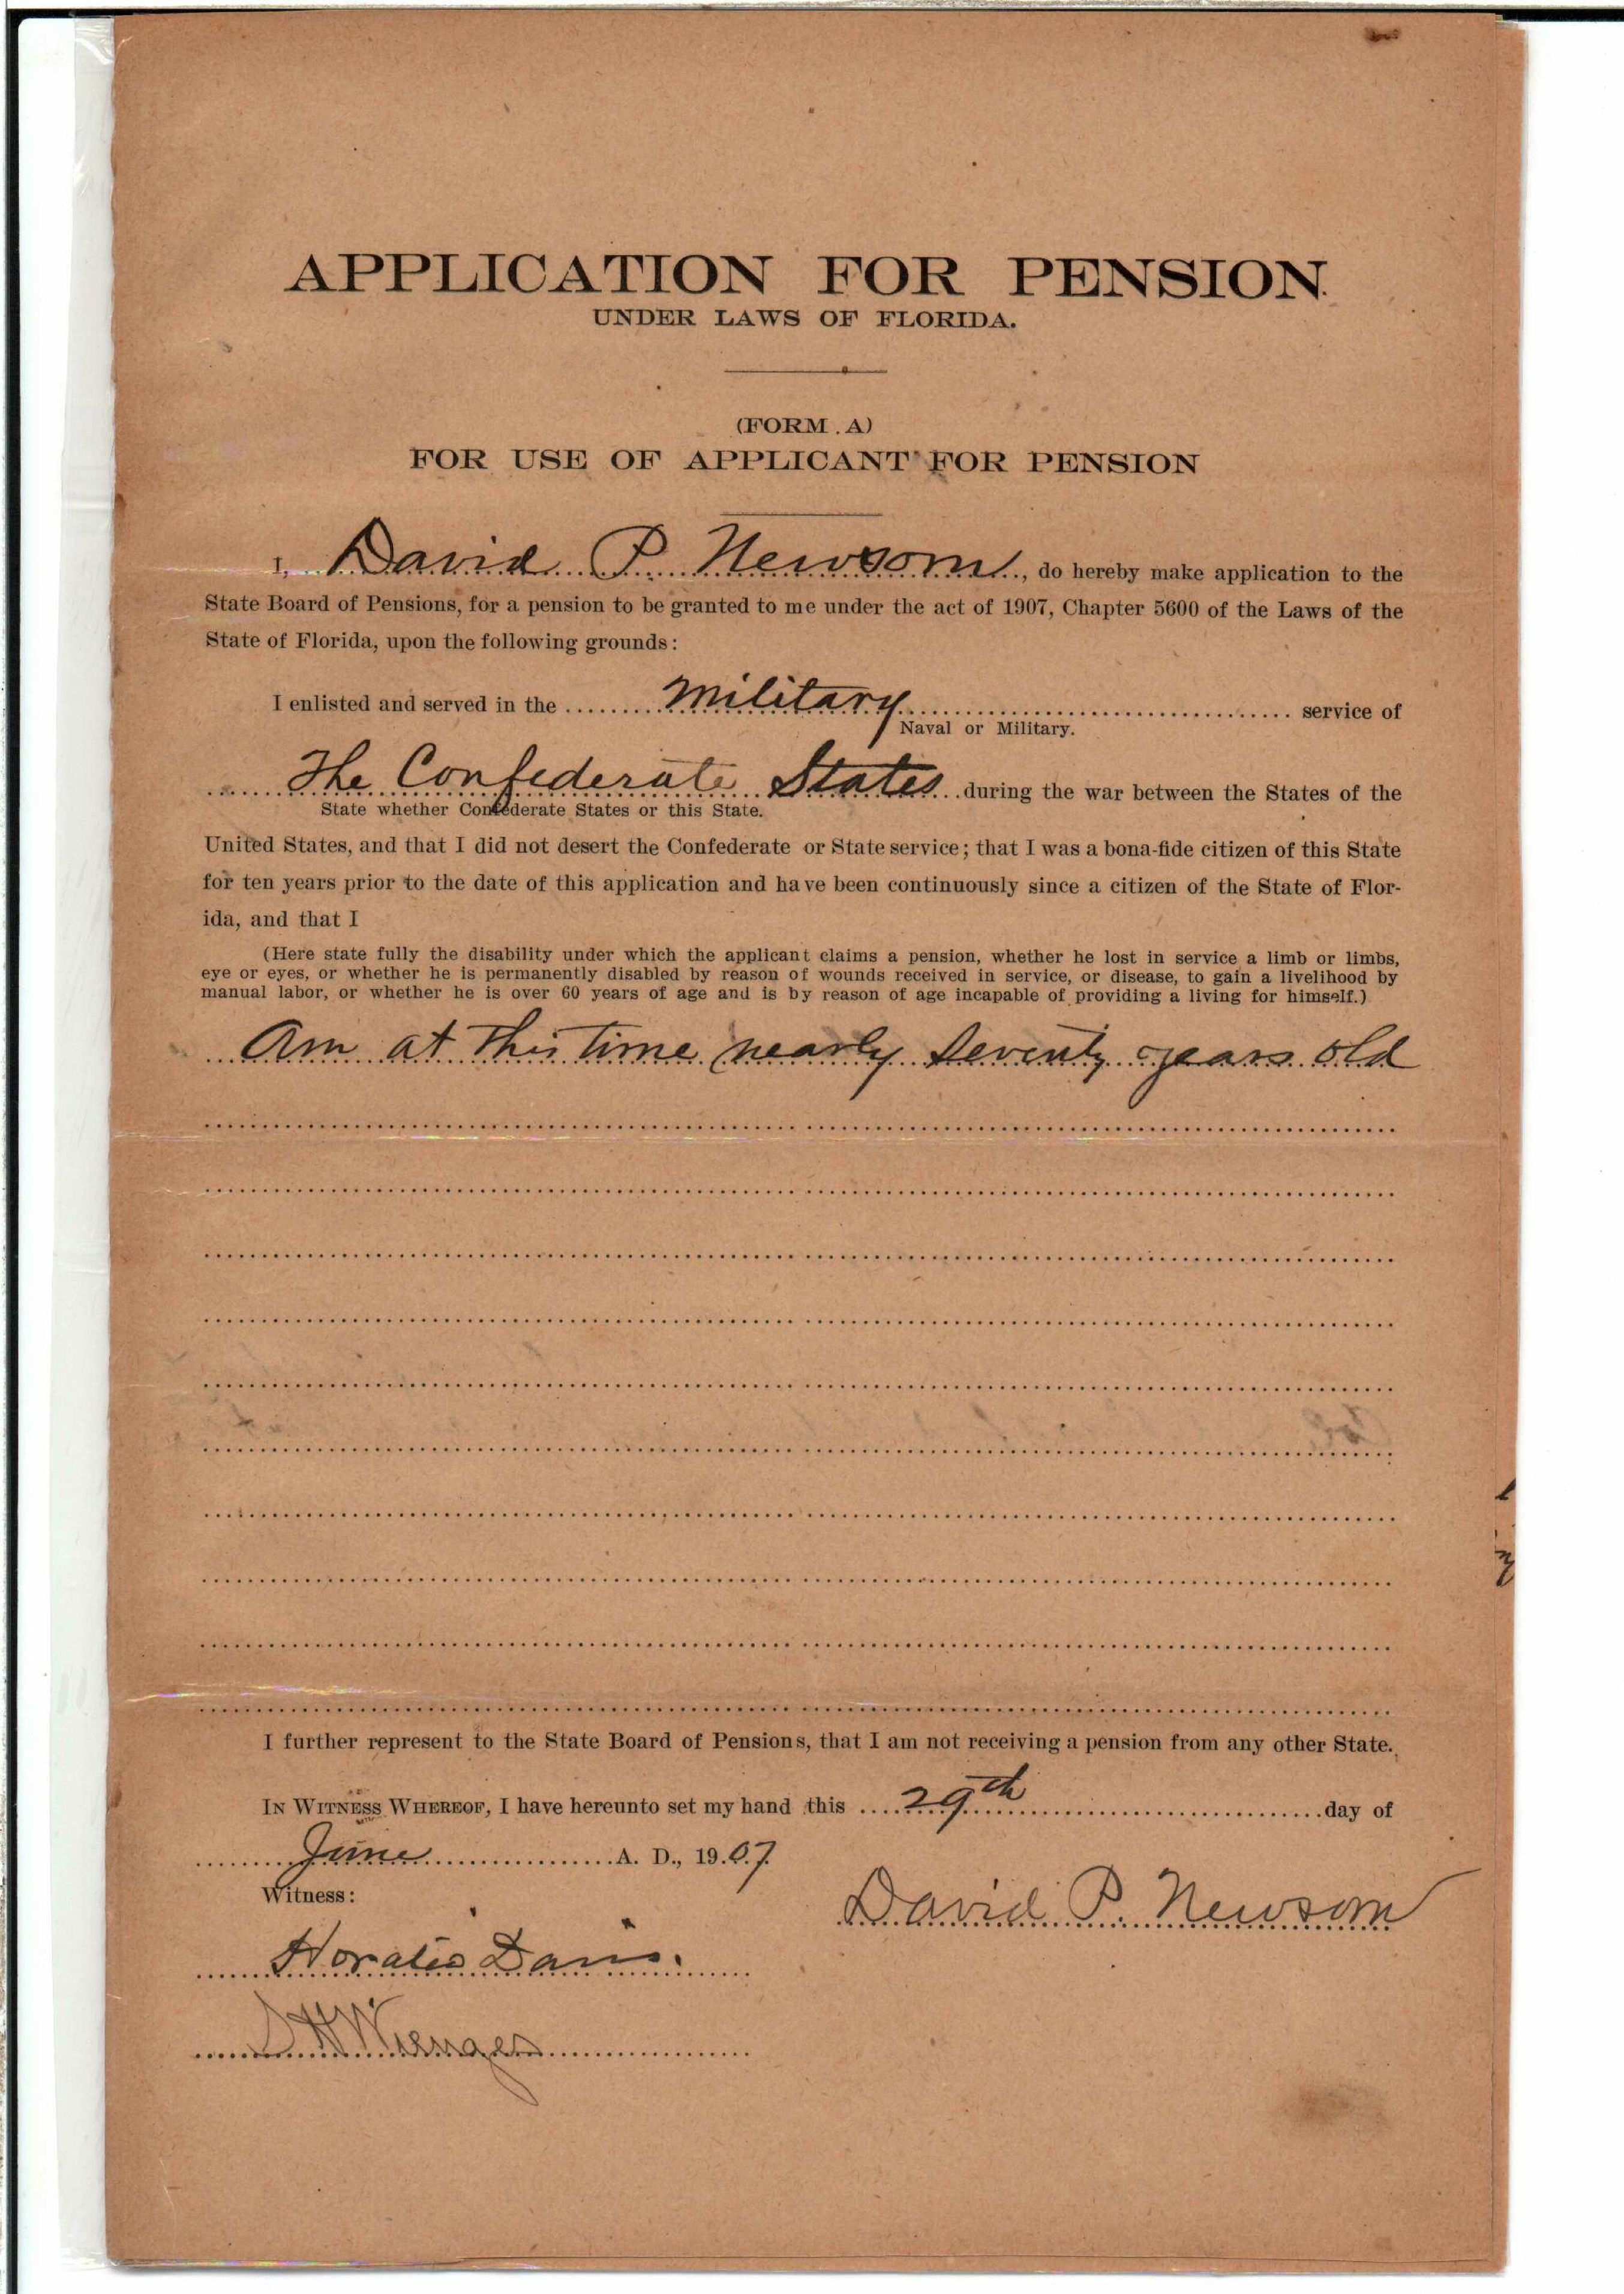 APPLICATION FOR PENSION.
UNDER LAWS OF FLORIDA.
(FORM. A)
FOR USE OF APPLICANT FOR PENSION
I, David P. Newsom, do hereby make application to the
State Board of Pensions, for a pension to be granted to me under the act of 1907, Chapter 5600 of the Laws of the
State of Florida, upon the following grounds:
I enlisted and served in the Military service of
Naval or Military.
The Confederate States during the war between the States of the
State whether Confederate States or this State.
United States, and that I did not desert the Confederate or State service; that I was a bona-fide citizen of this State
for ten years prior to the date of this application and have been continuously since a citizen of the State of Flor-
ida, and that I
(Here state fully the disability under which the applicant claims a pension, whether he lost in service a limb or limbs,
eye or eyes, or whether he is permanently disabled by reason of wounds received in service, or disease, to gain a livelihood by
manual labor, or whether he is over 60 years of age and is by reason of age incapable of providing a living for himself.)
Am at This time nearly Seventy years old
I further represent to the State Board of Pensions, that I am not receiving a pension from any other State.
IN WITNESS WHEREOF, I have hereunto set my hand this 29th day of
June A. D., 1907
Witness:
David P. Newsom
Horatio Davis